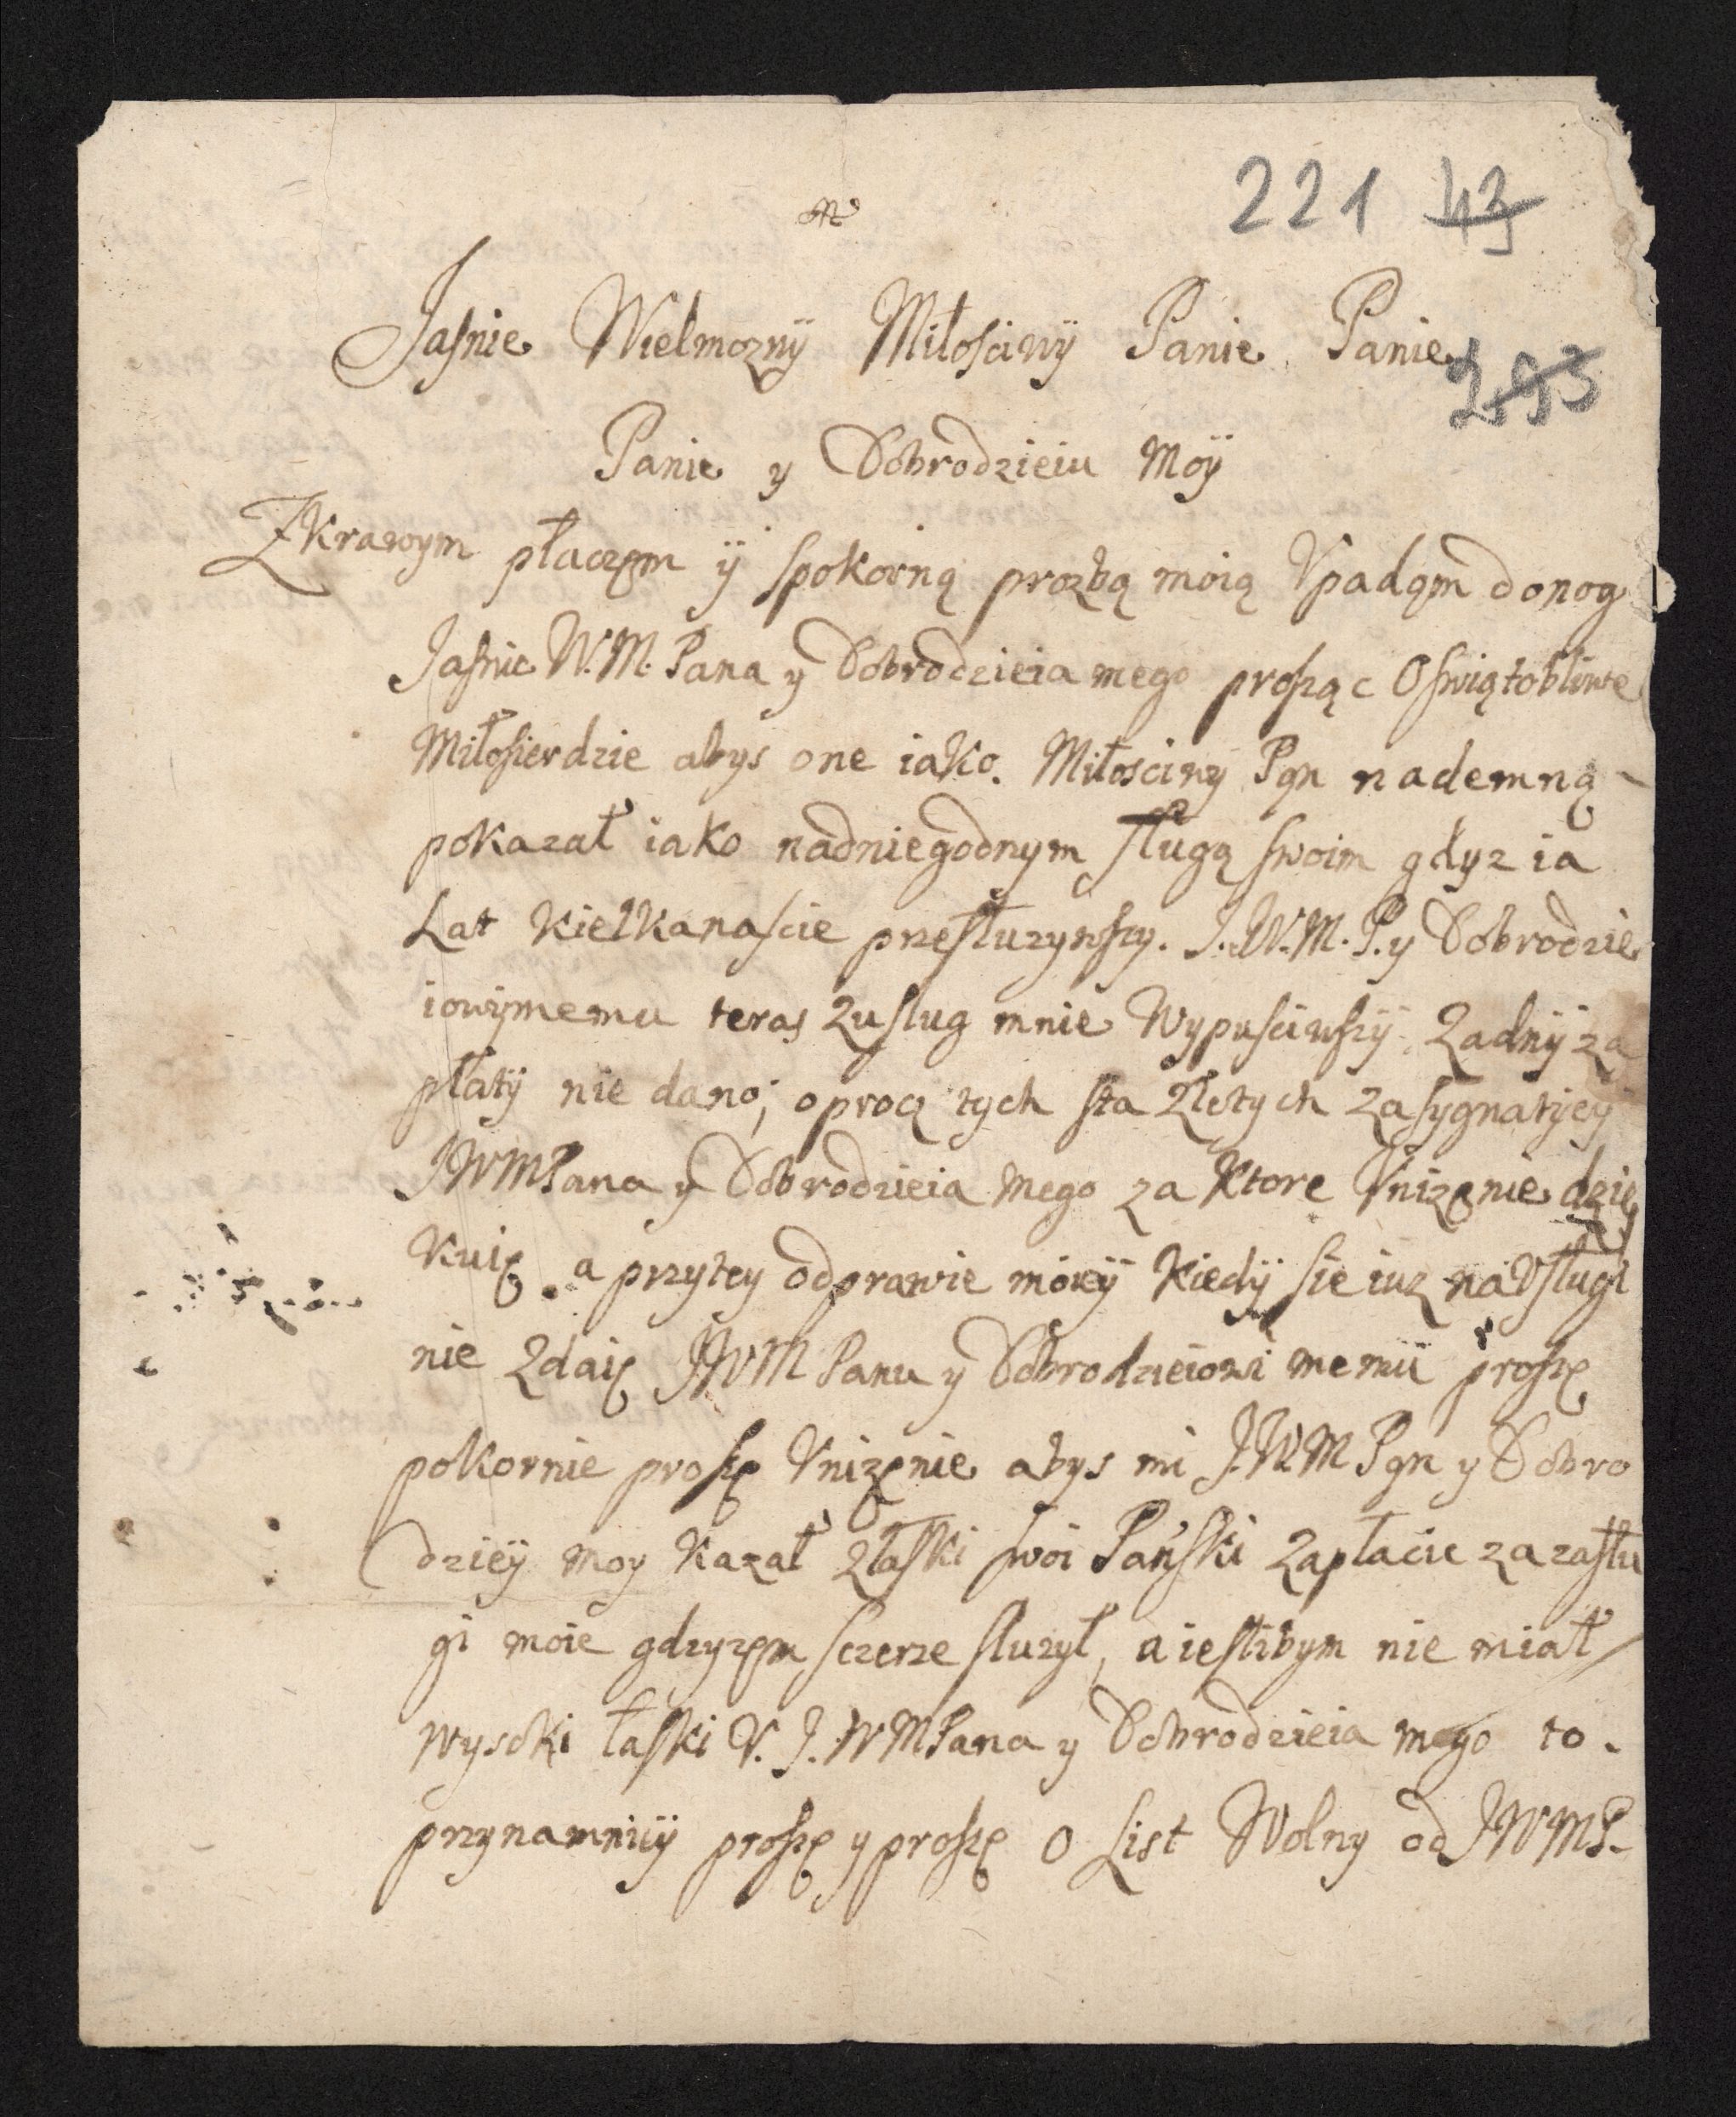 221 43
Jasnie Wielmozny Miłosciwy Panie Panie
293
Panie y Dobrodzieiu Moÿ
Zkrawym płaczęm ÿ spokorną prozbą moią Vpadąm donog
Jasnie W. M. Pana y Dobrodzieia mego prosząc Oswiątobliwe
Miłosierdzie abys one iako. Miłosciwy Pąn nademną
pokazał iako nadniegodnym sługą swoim gdyz ia
Lat kielkanascie przesłuzywszy. J. W. M. P. y Dobrodzie
iowÿmemu teras Zuslug mnie Wypusciwszÿ. Zadnÿ za
płatÿ nie dano; oprocz tych sta Złotych zasygnatÿcÿ
JWMPana y Dobrodzieia Mego za ktore Vnizęnie dzię
kuię. a przytey odprawie moieÿ kiedÿ sie iuz na Vsługi
nie Zdaię JWM Panu y Dobrodzieiowi memu proszę
pokornie proszę Vnizęnie abys mi J. W. M Pąn y Dobro
dzieÿ moy kazał Złaski swoi Pański Zapłacic za zasłu
gi moie gdzyzęm sczerze sluzył, a ieslibym nie miał
wysoki łaski V. J. WMPana y Dobrodzieia mego to.
przynamniÿ proszę y proszę O List Wolny od JWMP.